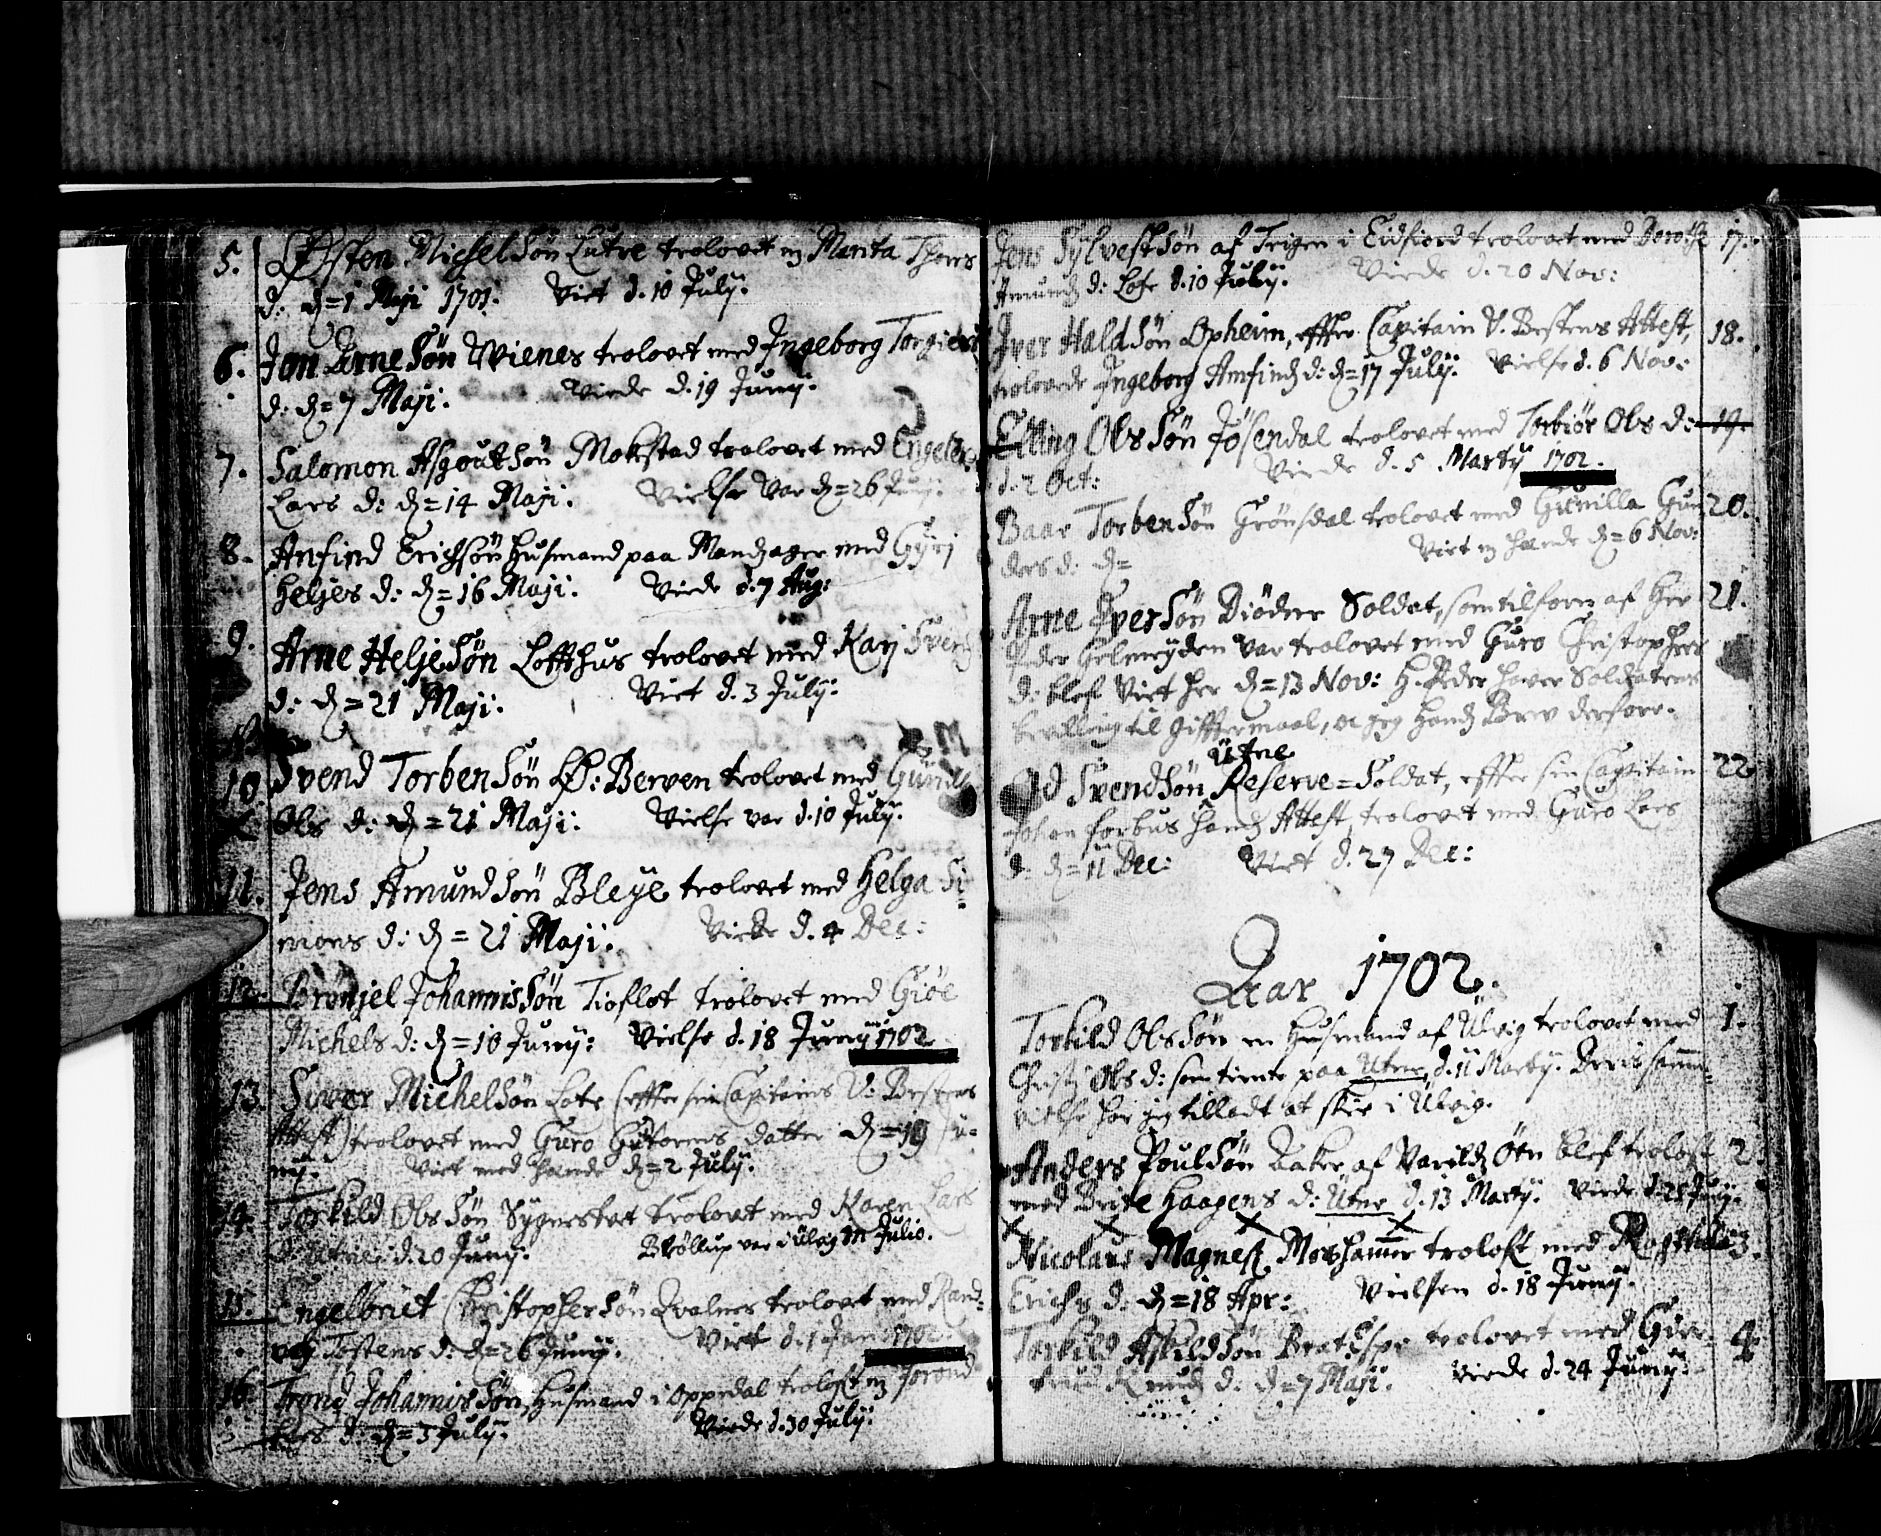 5. Østen MichelSøn Lutre trolovet m Marita Thors
d: d=1 Maji 1701. Viet d.10 Julij.
6. Jon ArneSøn Wienes trolovet med Ingeborg Torgiers
d: d=7 Maji. Viede d.19 Junij.
7. Salomon AsgoutSøn Mokestad trolovet med Engelbr
Lars d: d=14 Maji. Vielse var d=26 Junij.
8. Anfind Erichsøn Husmand paa Mandzager med Gyri
Heljes d: d=16 Maji. Viede d.7 Aug:
9. Arne HeljeSøn Loffthus trolovet med Karj Svens
d: d=21 Maji. Viet d.3 Julij.
10. Svend TorbenSøn Ø: Berven trolovet med Gunille
Ols d: d=21 Maji. Vielse var d.10 Julij.
11. Jens AmundSøn Bleye trolovet med Helga Si-
mons d: d=21 Maji. Viede d.4 Dec:
12. Brønjel JohannisSøn Tioflot trolovet med Giøe
Michels d: d=10 Junij: Vielse d.18 Junij 1702
13. Siver MichelSøn Lote (effter sin Capitains V: Bestens
Attest) trolovet med Guro Guttorms datter d=19 Ju-
nij. Viet med hænde d=2 Julij.
14. Torkild OlsSøn Sygnestvet trolovet med Karen Lars
d: Utne d.20 Junij. Brøllup var i Ulvig m Julio.
15. Engelbriet ChristopherSøn Qvalnes trolovet med Rand-
vej Tostens d: d=26 Junij. Viet d.1 Jan 1702.
16. Trond JohannisSøn, Husmand i Oppedal troloft m Jorond
Lars d: d=3 Julij. Viede d.30 Julij.
Jens SylvestSøn af Trigen i Eidfiord trolovet med Dorothe 17.
Amundz d: Lote d.10 Julij. Viede d.20 Nov:
Iver HaldSøn Opheim, effter Capitain V. Bestens Attest, 18.
trolovede Ingeborg Amfindz d: d=17 Julij. Vielse d.6 Nov:
Elling OlsSøn Jøsendal trolovet med Torbiør Ols d: 19.
d.2 Oct: Viede d.5 Martij 1702.
Baar TorbenSøn Grønsdal trolovet med Gunilla Gun 20.
ders d: d= Viet m hænde d=6 Nov:
Arne IverSøn Diødne Soldat, som tilforn af Her 21.
Peder Gelmeyden var trolovet med Guro Christophers
d: blef Viet her d=13 Nov: H. Peder haver Soldatens
bevilling til gifftermaal, oc jeg handz Brev derfore.
Utne
d SvendSøn Reserve=Soldat, effter sin Capitain 22
Johan forbus handz Attest, trolovet med Guro Lars
d. d=11 Dec: Viet d.27 Dec:
Aar 1702.
Torkild OlsSøn en Husmand af Ulvig trolovet med 1.
Christj Ols d: som tiente paa Utne, d.11 Martij. Deris samm-
vielse har jeg tilladt at skee i Ulvig.
Anders PoulSøn Aaker af Varildz Øen blef troloft 2.
med Brite Haagens d: Utne d.13 Martij. Viede d.25 Junij.
Nicolaus Magnesz. Morshamner troloft med Magthilla 3.
Erichs d: d=18 Apr: Vielsen d.18 Junij.
Torkild AskildSøn BratEspe trolovet med Giør- 4.
trud Knudz d: d=7 Maji. Viede d.24 Junij.